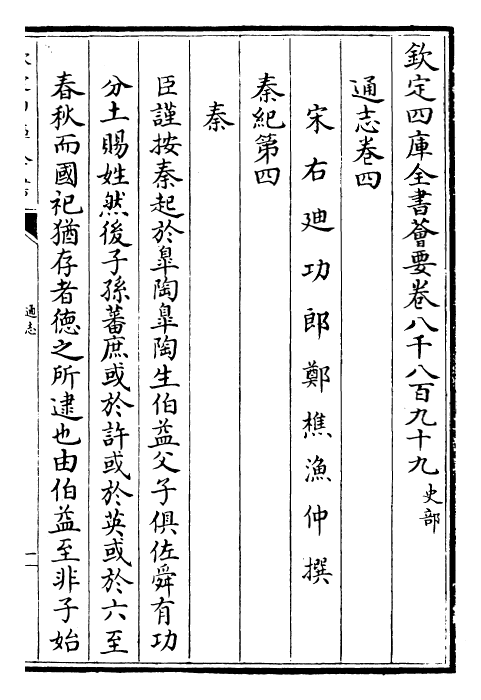 欽定四庫全書薈要卷八千八百九十九 史部
通志卷四
宋右廸功郎鄭樵漁仲撰
秦紀第四
秦
臣謹按秦起於臯陶臯陶生伯益父子俱佐舜有功
分土賜姓然後子孫蕃庶或於許或於英或於六至
春秋而國祀猶存者德之所逮也由伯益至非子始
通志
一